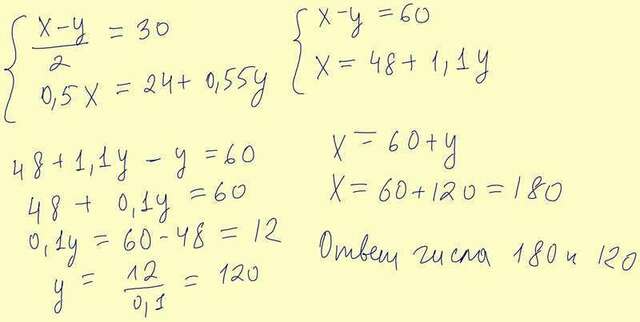 x-y/2 = 30
0,5x = 24+ 0,55y
x-y = 60
x = 48 + 1,1y
48+1,1y - y = 60
48 + 0,1y = 60
0,1y = 60-48 = 12
y = 12/0,1 = 120
x = 60+y
x = 60+120 = 180
Ответ числа 180 и 120